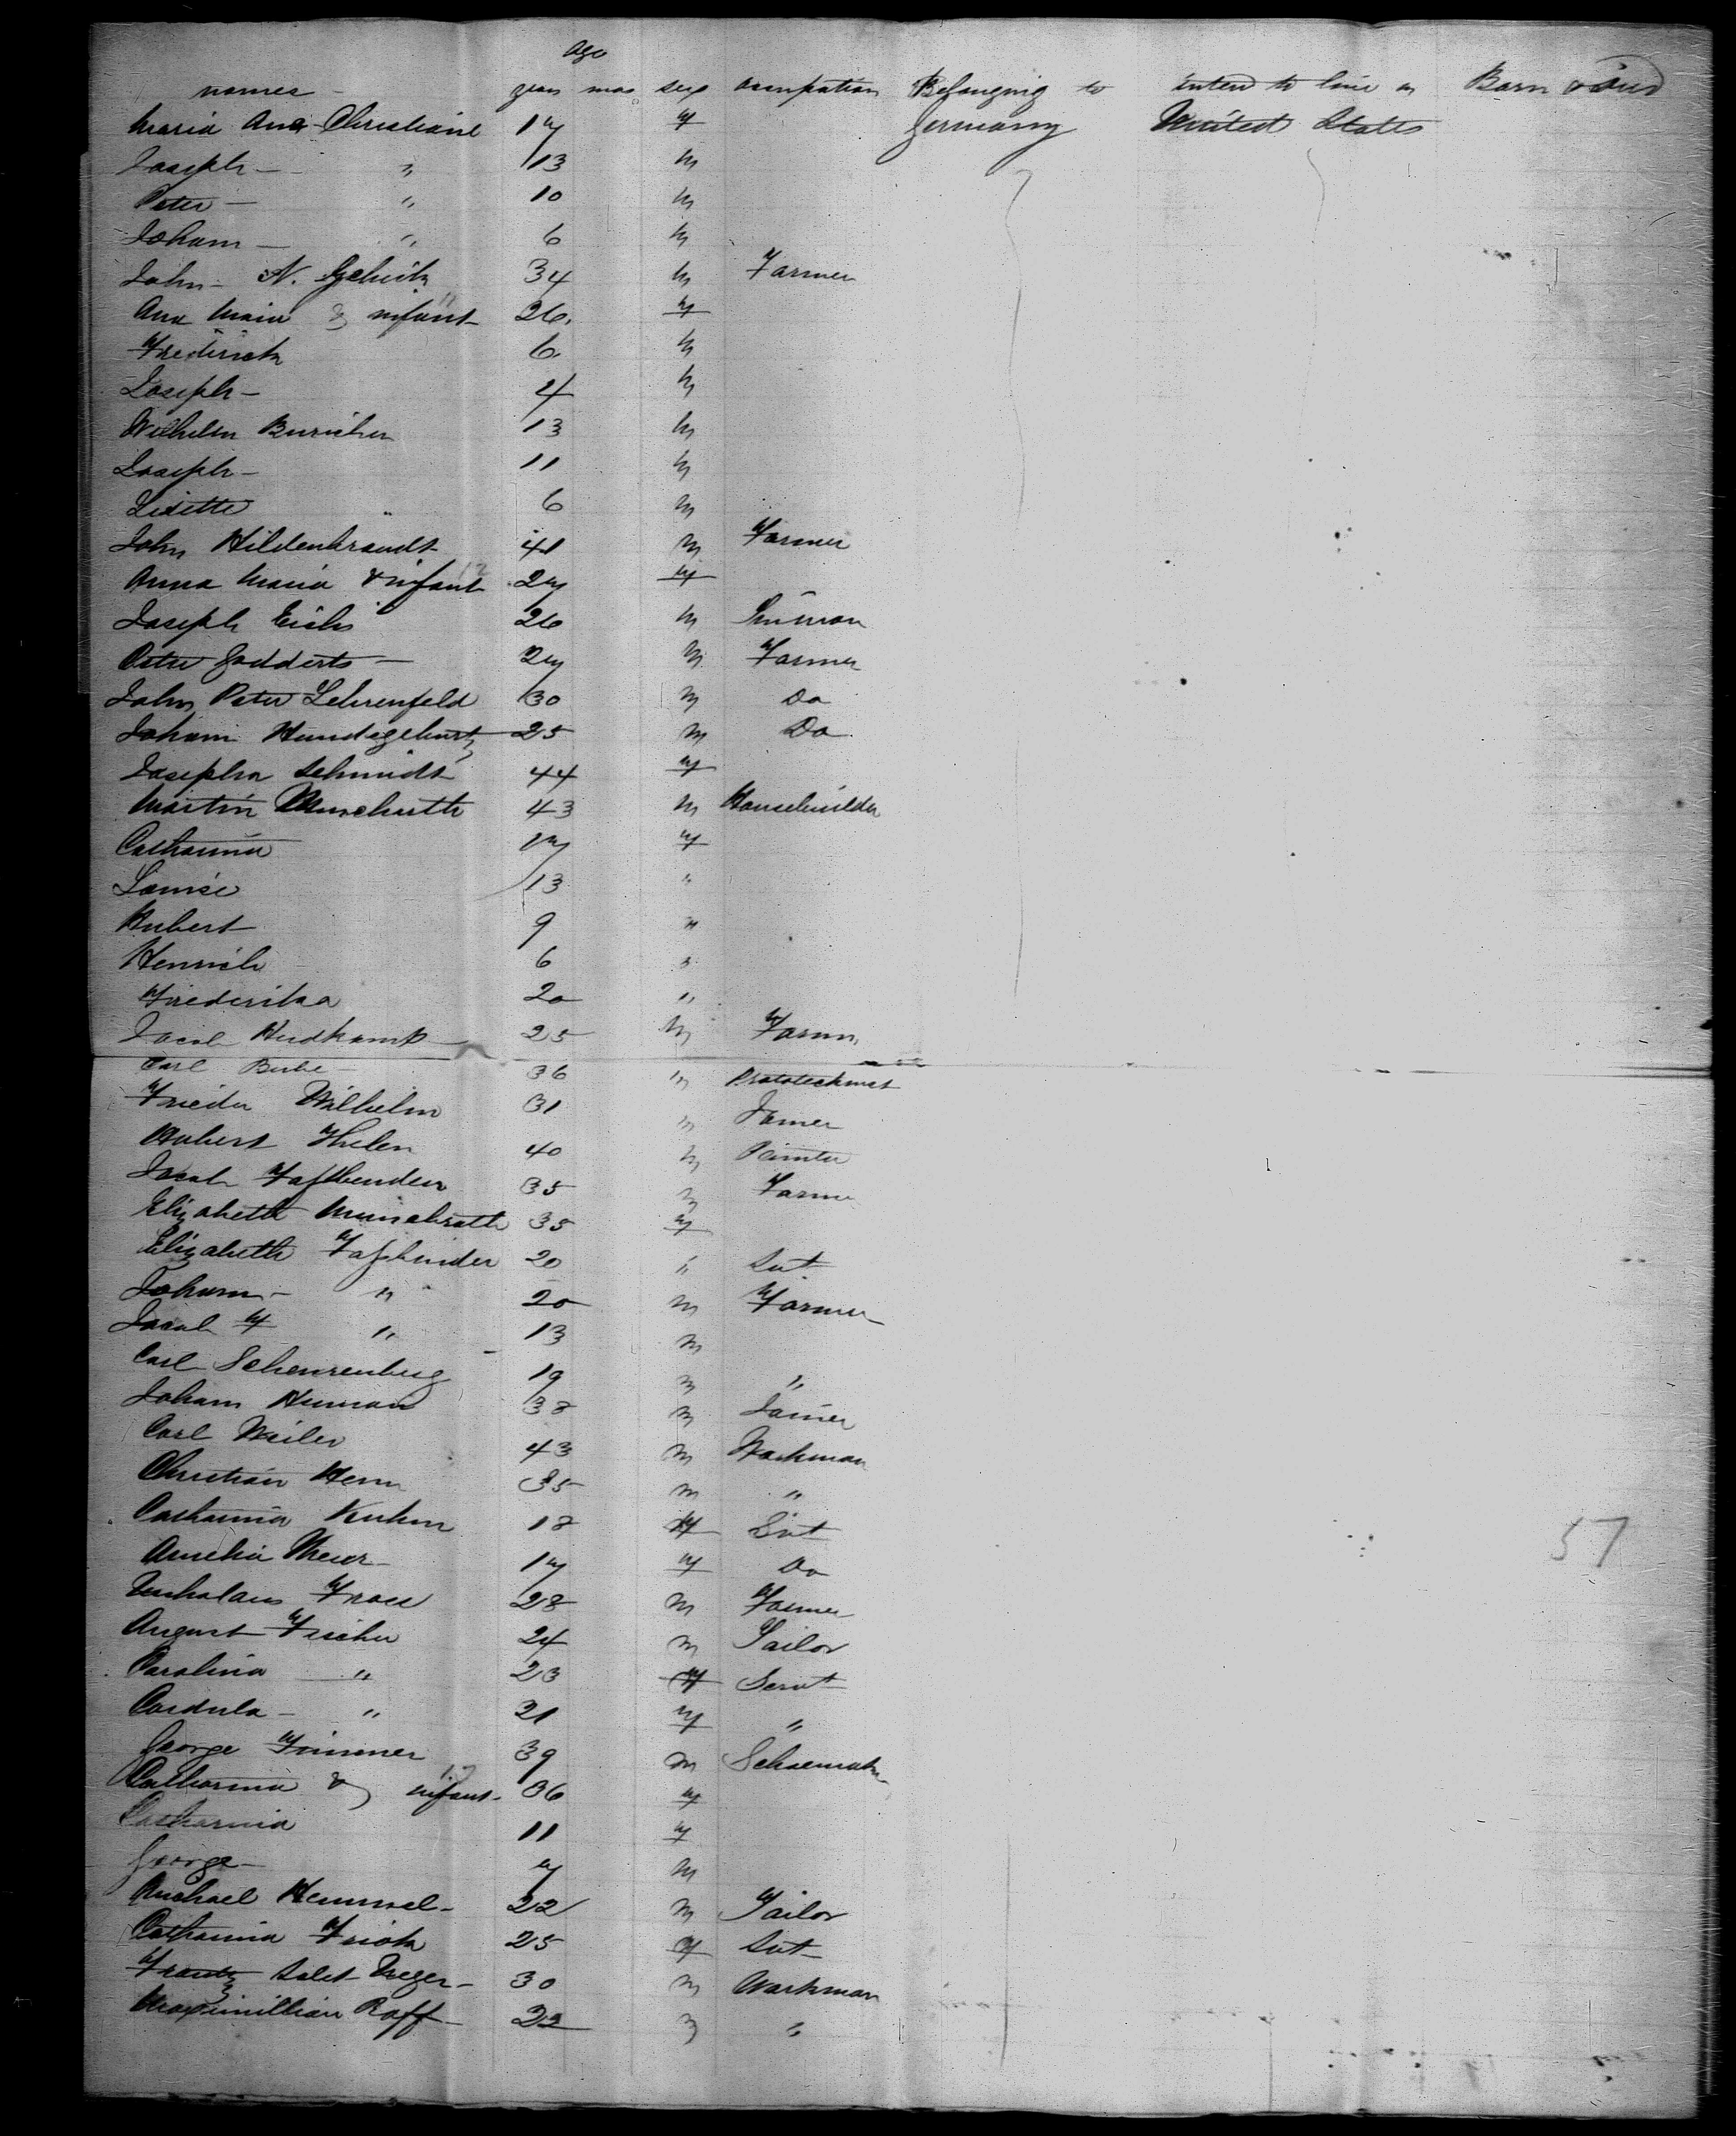 Age
names years mos sex occupation Belonging to intend to live in Born
Maria Ana Christiane 17 f Germany United States
Joseph " 13 m
Peter " 10 m
Joham " 6 m
John N. 34 m Farmer
Ana Maria & infant 26 f
Frederick 6 m
Joseph 4 m
Wilhelm 13 m
Joseph 11 m
Lisette " 6 m
John Hildenbrandt 41 m Farmer
Anna Maria & infant 27 f
Joseph 26 m
Peter Godderts 27 m Farmer
John Peter Lehrenfeld 30 m Do
Joham Hundsgeburtz 25 m Do
Josepha Schmidt 44 f
Martin 43 m Housebuilder
Catharina 17 f
Louise 13 "
Hubert 9 "
Henrich 6 "
Frederika 20 "
Jacob Heidkamp 25 m Farmer
Carl 36 m
Frieder Wilhelm 31 m
Hubert Thelen 40 m
Jacob Faßbender 35 m Farmer
Elizabeth 35 f
Elizabeth Faßbinder 20 " Svt
Joham " 20 m Farmer
Jacob F " 13 m
Carl Scheurenberg 19 m "
Joham Heuman 38 m
Carl Weiler 43 m Workman
Christian Henn 35 m "
Catharina Kuhm 18 f Svt
Amelia 17 f Do
Nicholaus 28 m Farmer
August Fischer 24 m Tailor
Carolina " 23 f Servt
Cordula " 21 f "
George 39 m Schoemak
Catharina & infant 36 f
Catharina 11 f
George 7 m
Michael Hemmel 22 m Tailor
Catharina Frick 25 f Svt
Frantz 30 m Workman
Maximillian Raff 22 m "
57